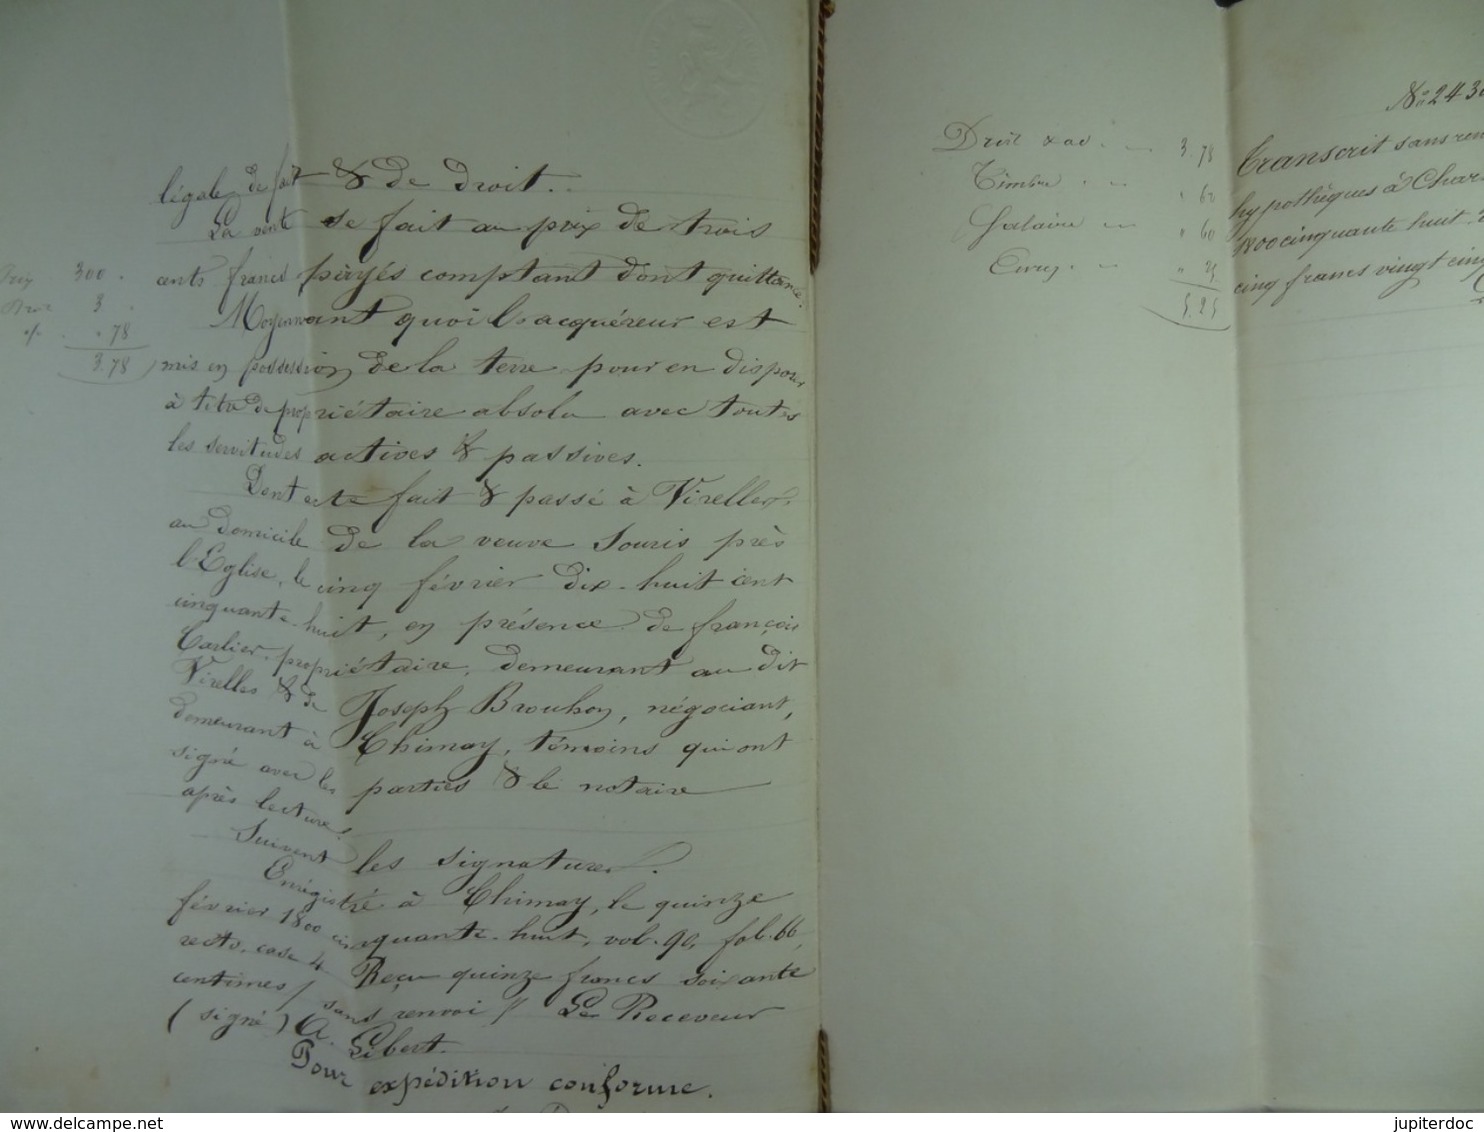 légale de fait & de droit.
La vente se fait au prix de trois
cents francs payés comptant dont quittance.
Moyennant quoi l'acquéreur est
mis en possession de la terre pour en disposer
à titre de propriétaire absolu avec toutes
les servitudes actives & passives.
Dont acte fait & passé à Virelles,
au domicile de la veuve Souris près
l'Eglise, le cinq février dix-huit cent
cinquante-huit, en présence de françois
Carlier, propriétaire, demeurant au dit
Virelles & de Joseph Brouhon, négociant,
demeurant à Chimay, témoins qui ont
signé avec les parties & le notaire
après lecture.
Suivent les signatures.
Enrégistré à Chimay, le quinze
février 1800 cinquante-huit, vol. 90, fol. 66,
recto, case 4 Reçu quinze francs soixante
centimes / sans renvoi // Le Receveur
(signé) A. Gibert.
Pour expédition conforme.
Prix 300
3
78
3.78
Droit 3.78
Timbre " 60
Salaire " 60
" 25
5.25
No 243
Transcrit sans ren
hypothèques à Char
1800 cinquante huit
cinq francs vingt cinq
jupiterdoc